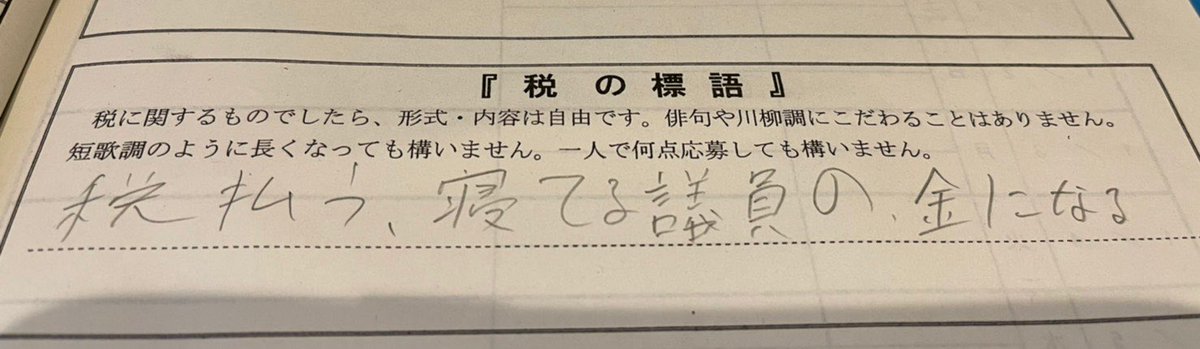 『税の標語』
税に関するものでしたら、形式・内容は自由です。俳句や川柳調にこだわることはありません。
短歌調のように長くなっても構いません。一人で何点応募しても構いません。
税払う、寝てる議員の、金になる